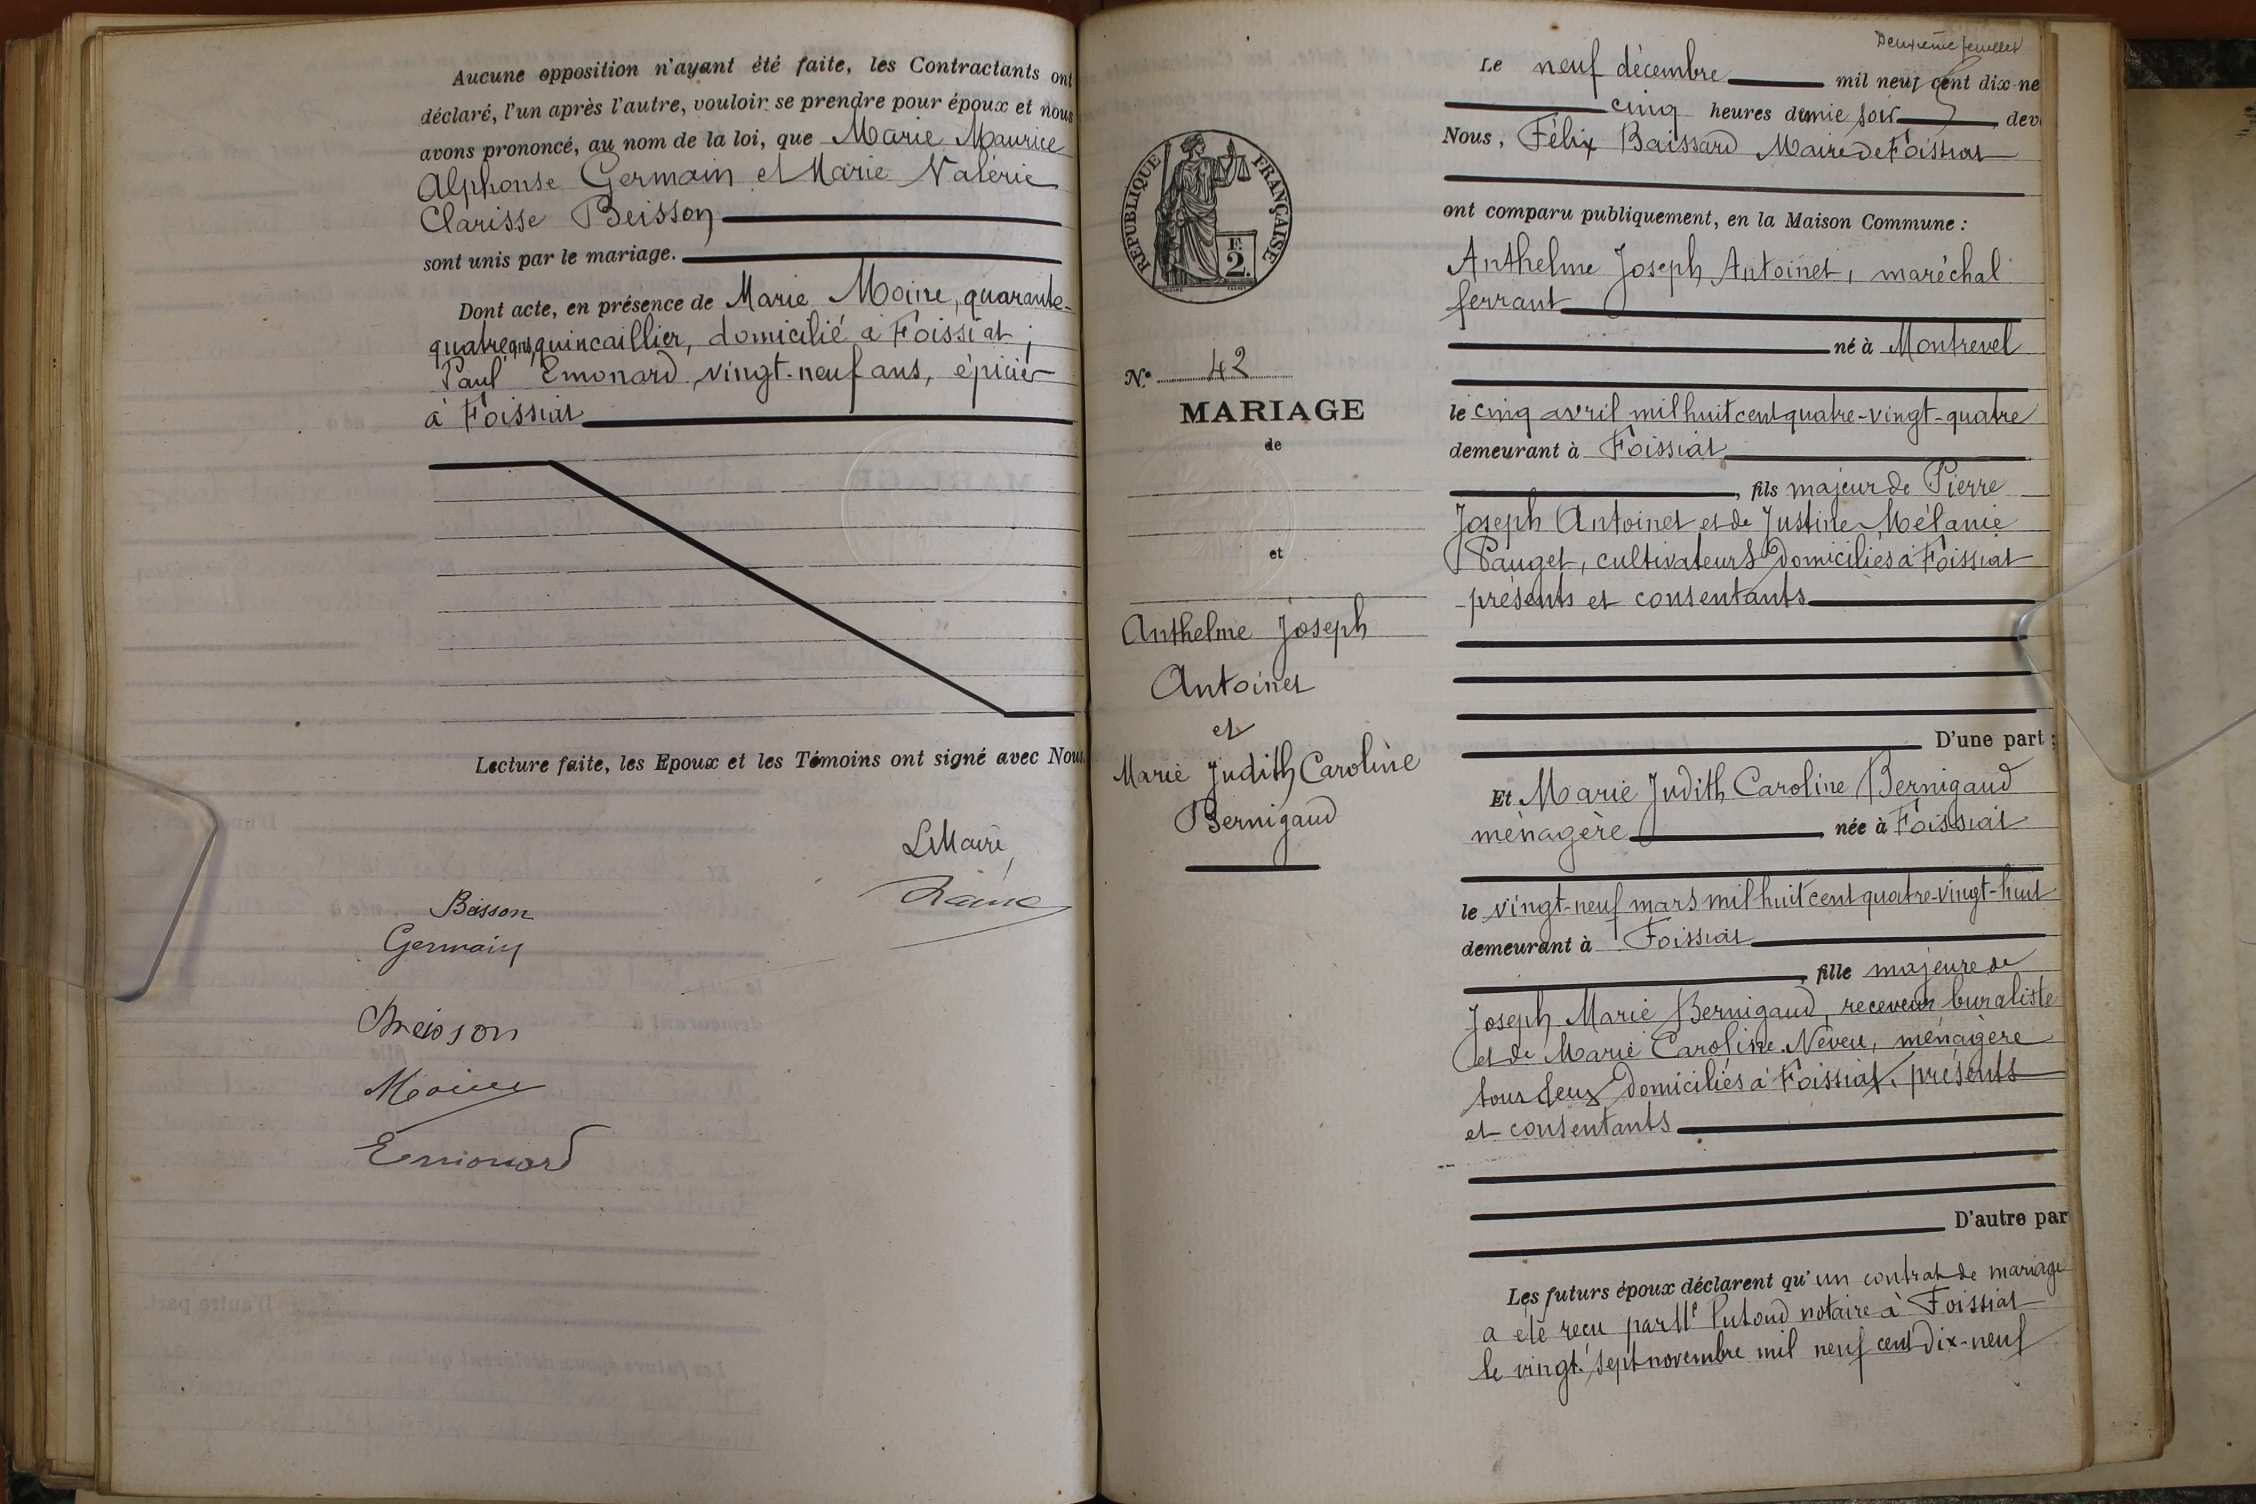 Aucune opposition n'ayant été faite, les Contractants ont
déclaré, l'un après l'autre, vouloir se prendre pour époux et nous
avons prononcé, au nom de la loi, que Marie Maurice
Alphonse Germain et Marie Valérie
Clarisse Beisson
sont unis par le mariage.
Dont acte, en présence de Marie Moine, quarante-
quatre ans, quincaillier, domicilié à Foissiat ;
Paul Emonard, vingt-neuf ans, épicier
à Foissiat
Lecture faite, les Epoux et les Témoins ont signé avec Nous.
Le Maire,
Beisson
Germain
Beisson
Moine
Emonard
RÉPUBLIQUE FRANÇAISE
F.
2.
N° 42
MARIAGE
de
et
Anthelme Joseph
Antoinet
et
Marie Judith Caroline
Bernigaud
Deuxième feuillet
Le neuf décembre mil neuf cent dix-ne
cinq heures demie soir, dev
Nous, Félix Baissard Maire de Foissiat
ont comparu publiquement, en la Maison Commune :
Anthelme Joseph Antoinet, maréchal
ferrant
né à Montrevel
le cinq avril mil huit cent quatre-vingt-quatre
demeurant à Foissiat
, fils majeur de Pierre
Joseph Antoinet et de Justine Mélanie
Pauget, cultivateurs domiciliés à Foissiat
présents et consentants
D'une part ;
Et Marie Judith Caroline Bernigaud
ménagère née à Foissiat
le vingt-neuf mars mil huit cent quatre-vingt-huit
demeurant à Foissiat
, fille majeure de
Joseph Marie Bernigaud, receveur buraliste
et de Marie Caroline Neveu, ménagère
tous deux domiciliés à Foissiat, présents
et consentants
D'autre par
Les futurs époux déclarent qu'un contrat de mariage
a été reçu par Me Putoud notaire à Foissiat
le vingt-sept novembre mil neuf cent dix-neuf